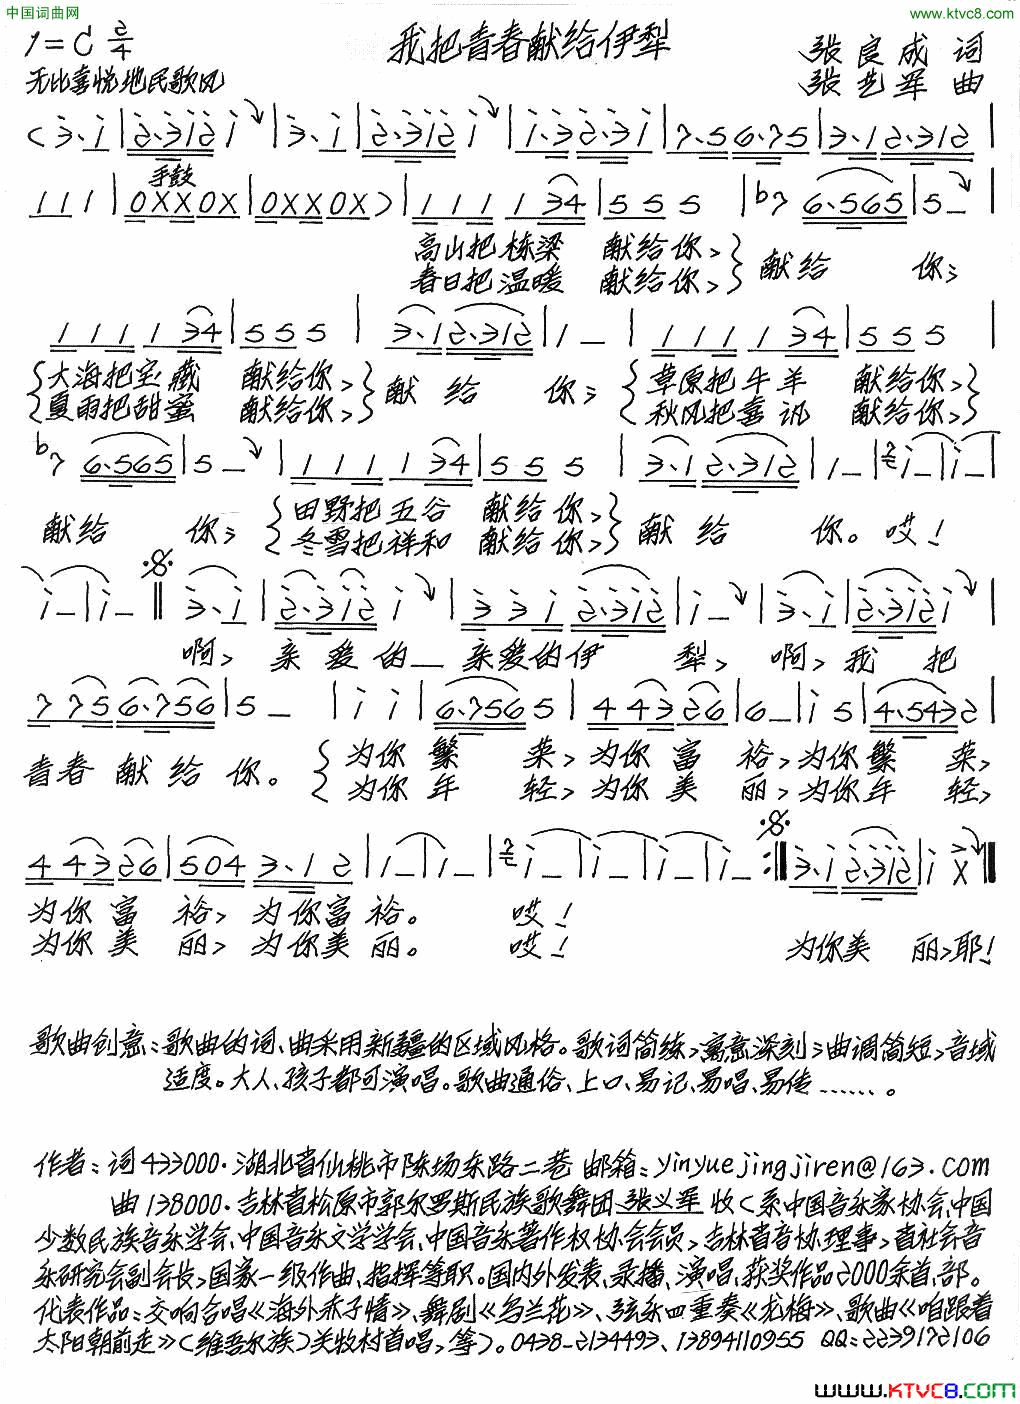 中国词曲网
www.ktvc8.com
1=C 2/4
我把青春献给伊犁
张良成 词
无比喜悦地民歌风
张艺军 曲
(3·1|2·312 1|3·1|2·312 1|1·32·31|7·56·75|3·12·312|
手鼓
111|0XX0X|0XX0X)|111134|555|b7 6·565|5-|
高山把栋梁 献给你,}献给 你;
春日把温暖 献给你,
111134|555|3·12·312|1-|111134|555|
{大海把宝藏 献给你,}献给 你;{草原把牛羊 献给你,}
夏雨把甜蜜 献给你, 秋风把喜讯 献给你,
b7 6·565|5-|111134|555|3·12·312|1-|72 1-|1-|
献给 你;{田野把五谷 献给你,}献给 你。哎!
冬雪把祥和 献给你,
1-|1-‖3·1|2·312 1|3312·312|1-|3·1|2·312 1|
啊, 亲爱的— 亲爱的伊 犁, 啊,我把
7756·756|5-|11|6·7565|44326|6-|15|4·5432|
青春献给你。{为你繁 荣,为你富 裕,为你繁 荣,
为你年 轻,为你美 丽,为你年 轻,
44326|5043·12|1-|1-|1-|1-|1-|1-:‖3·12·312|1X‖
为你富 裕,为你富裕。 哎!
为你美 丽,为你美丽。 哎! 为你美 丽,耶!
歌曲创意:歌曲的词、曲采用新疆的区域风格。歌词简练,寓意深刻;曲调简短,音域
适度。大人、孩子都可演唱。歌曲通俗、上口、易记、易唱、易传……。
作者:词433000·湖北省仙桃市陈场东路二巷 邮箱:yinyuejingjiren@163.com
曲138000·吉林省松原市郭尔罗斯民族歌舞团张艺军 收(系中国音乐家协会、中国
少数民族音乐学会、中国音乐文学学会、中国音乐著作权协会会员,吉林省音协理事,省社会音
乐研究会副会长,国家一级作曲、指挥等职。国内外发表、录播、演唱、获奖作品2000余首、部。
代表作品:交响合唱《海外赤子情》、舞剧《乌兰花》、弦乐四重奏《龙梅》、歌曲《咱跟着
太阳朝前走》(维吾尔族)关牧村首唱,等)。0438-2134493、13894110955 QQ:2239172106
www.KTVC8.COM